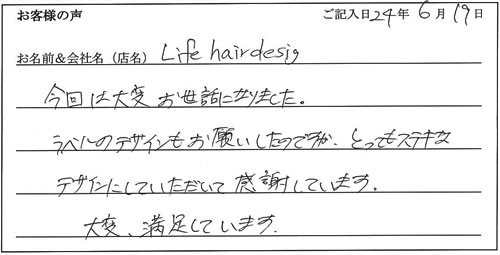 お客様の声 ご記入日24年6月19日
お名前＆会社名（店名） Life hairdesig
今回は大変お世話になりました。
ラベルのデザインもお願いしたのですが、とってもステキな
デザインにしていただいて感謝しています。
大変、満足しています。